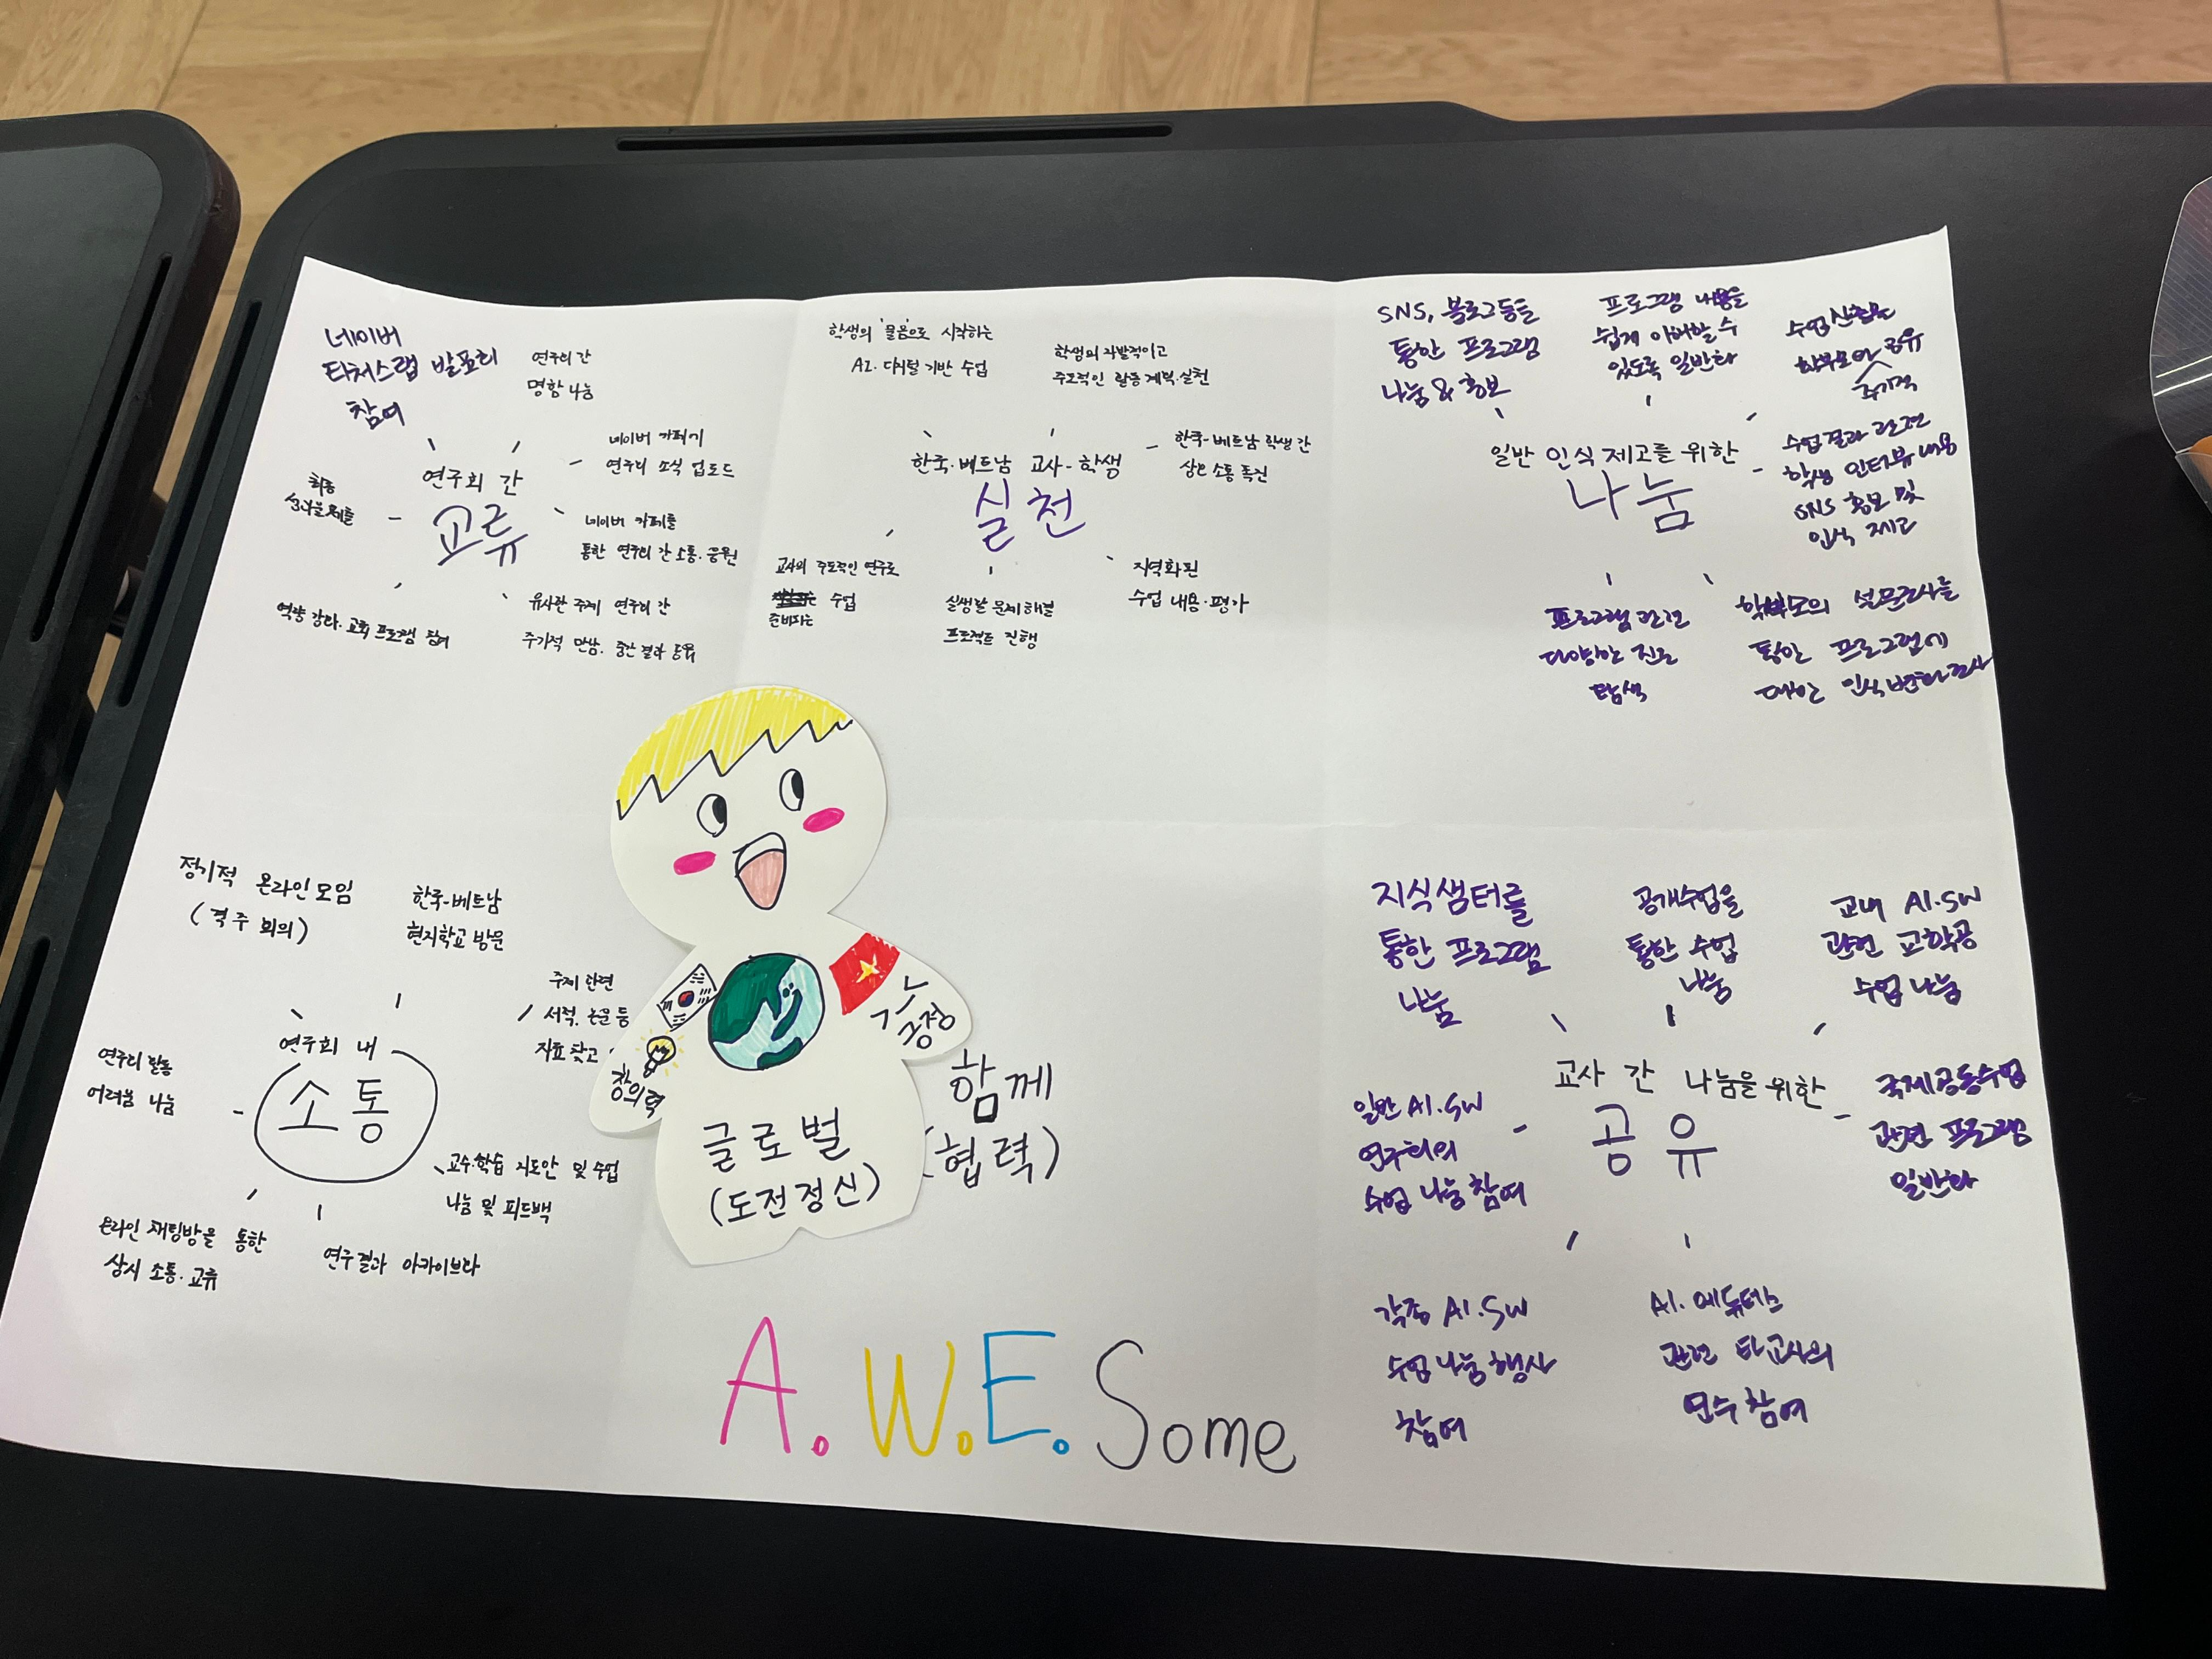 네이버
티처스랩 발표회
참여
연구회 간
명함 나눔
네이버 카페에
연구회 소식 업로드
연구회 간
교류
최종
네이버 카페를
통한 연구회 간 소통·응원
역량 강화·교육 프로그램 참여
유사한 주제 연구회 간
주기적 만남, 중간 결과 공유
학생의 '물음'으로 시작하는
AI·디지털 기반 수업
학생의 자발적이고
주도적인 활동 계획·실천
한국-베트남 교사-학생
실천
한국-베트남 학생 간
상호 소통 촉진
교사의 주도적인 연구로
수업
준비하는
실생활 문제해결
프로젝트 진행
지역화된
수업 내용·평가
SNS, 블로그등을
통한 프로그램
나눔 & 홍보
프로그램 내용을
쉽게 이해할 수
있도록 일반화
수업 산출물
학부모와 공유
주기적
일반 인식 제고를 위한
나눔
수업 결과 관련
학생 인터뷰 내용
SNS 홍보 및
인식 제고
프로그램 관련
다양한 진로
탐색
학부모의 설문조사를
통한 프로그램에
대한 인식 변화 조사
정기적 온라인 모임
(격주 회의)
한국-베트남
현지학교 방문
주제 관련
서적, 논문 등
자료 찾고
연구회 내
소통
연구회 활동
어려움 나눔
교수·학습 지도안 및 수업
나눔 및 피드백
온라인 채팅방을 통한
상시 소통·교류
연구결과 아카이브화
창의력
긍정
글로벌
(도전정신)
함께
(협력)
지식샘터를
통한 프로그램
나눔
공개수업을
통한 수업
나눔
교내 AI·SW
관련 교학공
수업 나눔
교사 간 나눔을 위한
공유
일반 AI·SW
연구회의
수업 나눔 참여
국제공동수업
관련 프로그램
일반화
각종 AI·SW
수업 나눔 행사
참여
AI·에듀테크
관련 타교사의
연수 참여
A.W.E.Some